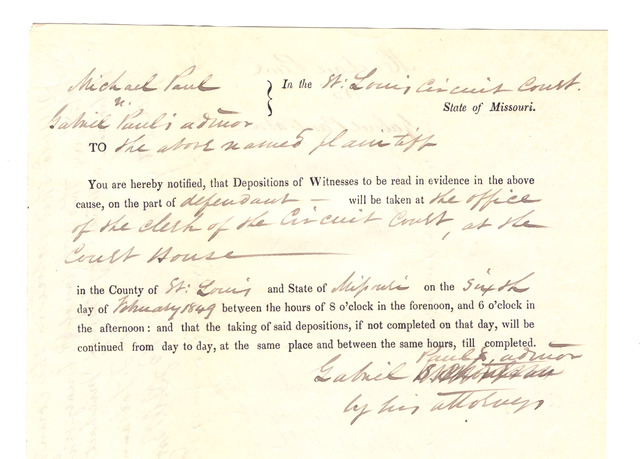 Michael Paul
vs
Gabriel Paul's admor
In the St. Louis Circuit Court.
State of Missouri.
TO the above named plaintiff
You are hereby notified, that Depositions of Witnesses to be read in evidence in the above
cause, on the part of defendant — will be taken at the office
of the clerk of the Circuit Court, at the
Court House
in the County of St. Louis and State of Missouri on the Sixth
day of February 1849 between the hours of 8 o'clock in the forenoon, and 6 o'clock in
the afternoon: and that the taking of said depositions, if not completed on that day, will be
continued from day to day, at the same place and between the same hours, till completed.
Gabriel Paul's, admor
by his attorneys